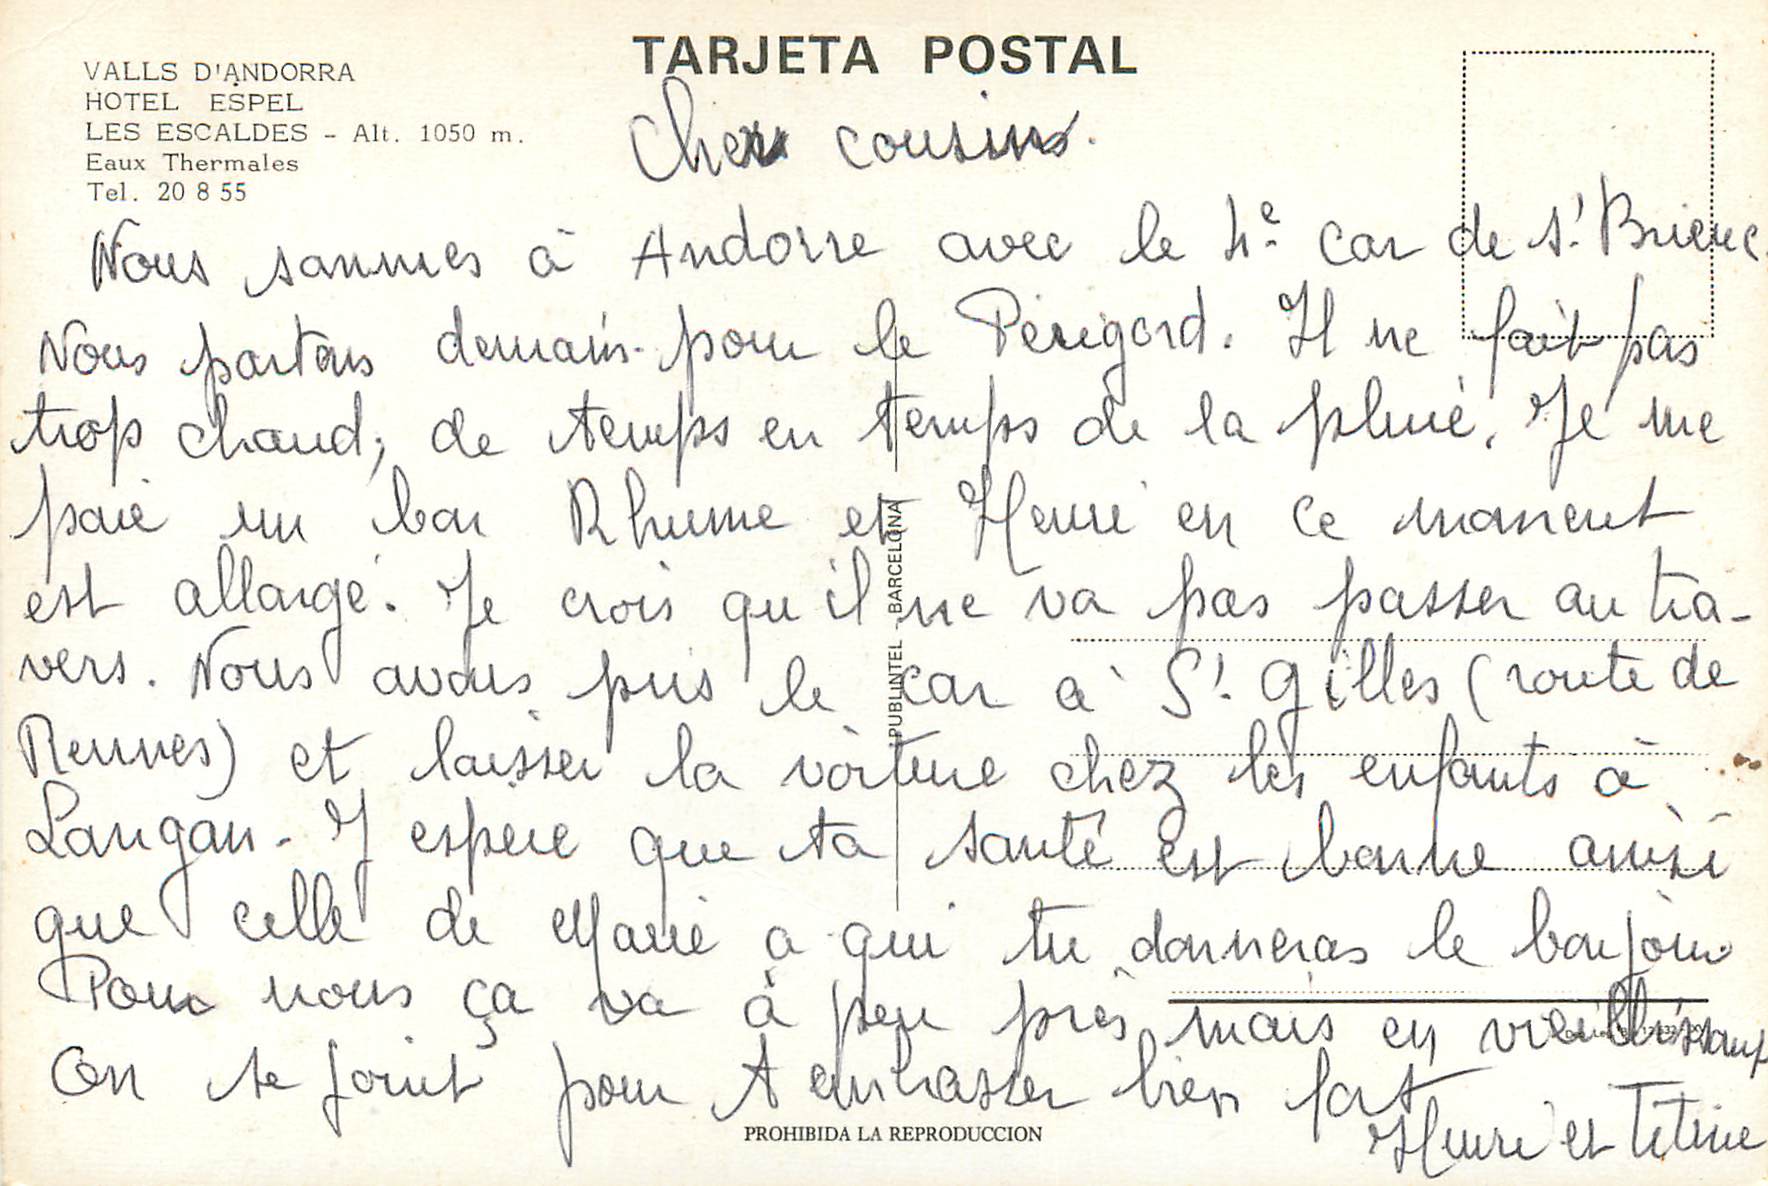 VALLS D'ANDORRA
HOTEL ESPEL
LES ESCALDES - Alt. 1050 m.
Eaux Thermales
Tel. 20 8 55
TARJETA POSTAL
Cher cousins.
Nous sommes à Andorre avec le 4e car de St Brieuc.
Nous partons demain pour le Périgord. Il ne fait pas
trop chaud, de temps en temps de la pluie. Je me
paie un bon Rhume et Henri en ce moment
est allargé. Je crois qu'il ne va pas passer au tra-
vers. Nous avons pris le car à St Gilles (route de
Rennes) et laisser la voiture chez les enfants à
Langan - J espère que ta santé est bonne ainsi
que celle de Marie a qui tu donneras le bonjour
Pour nous ça va à peu près mais en vieillissant
On se joint pour t embrasser bien fort
Henri et Titine
PUBLINTEL - BARCELONA
PROHIBIDA LA REPRODUCCION